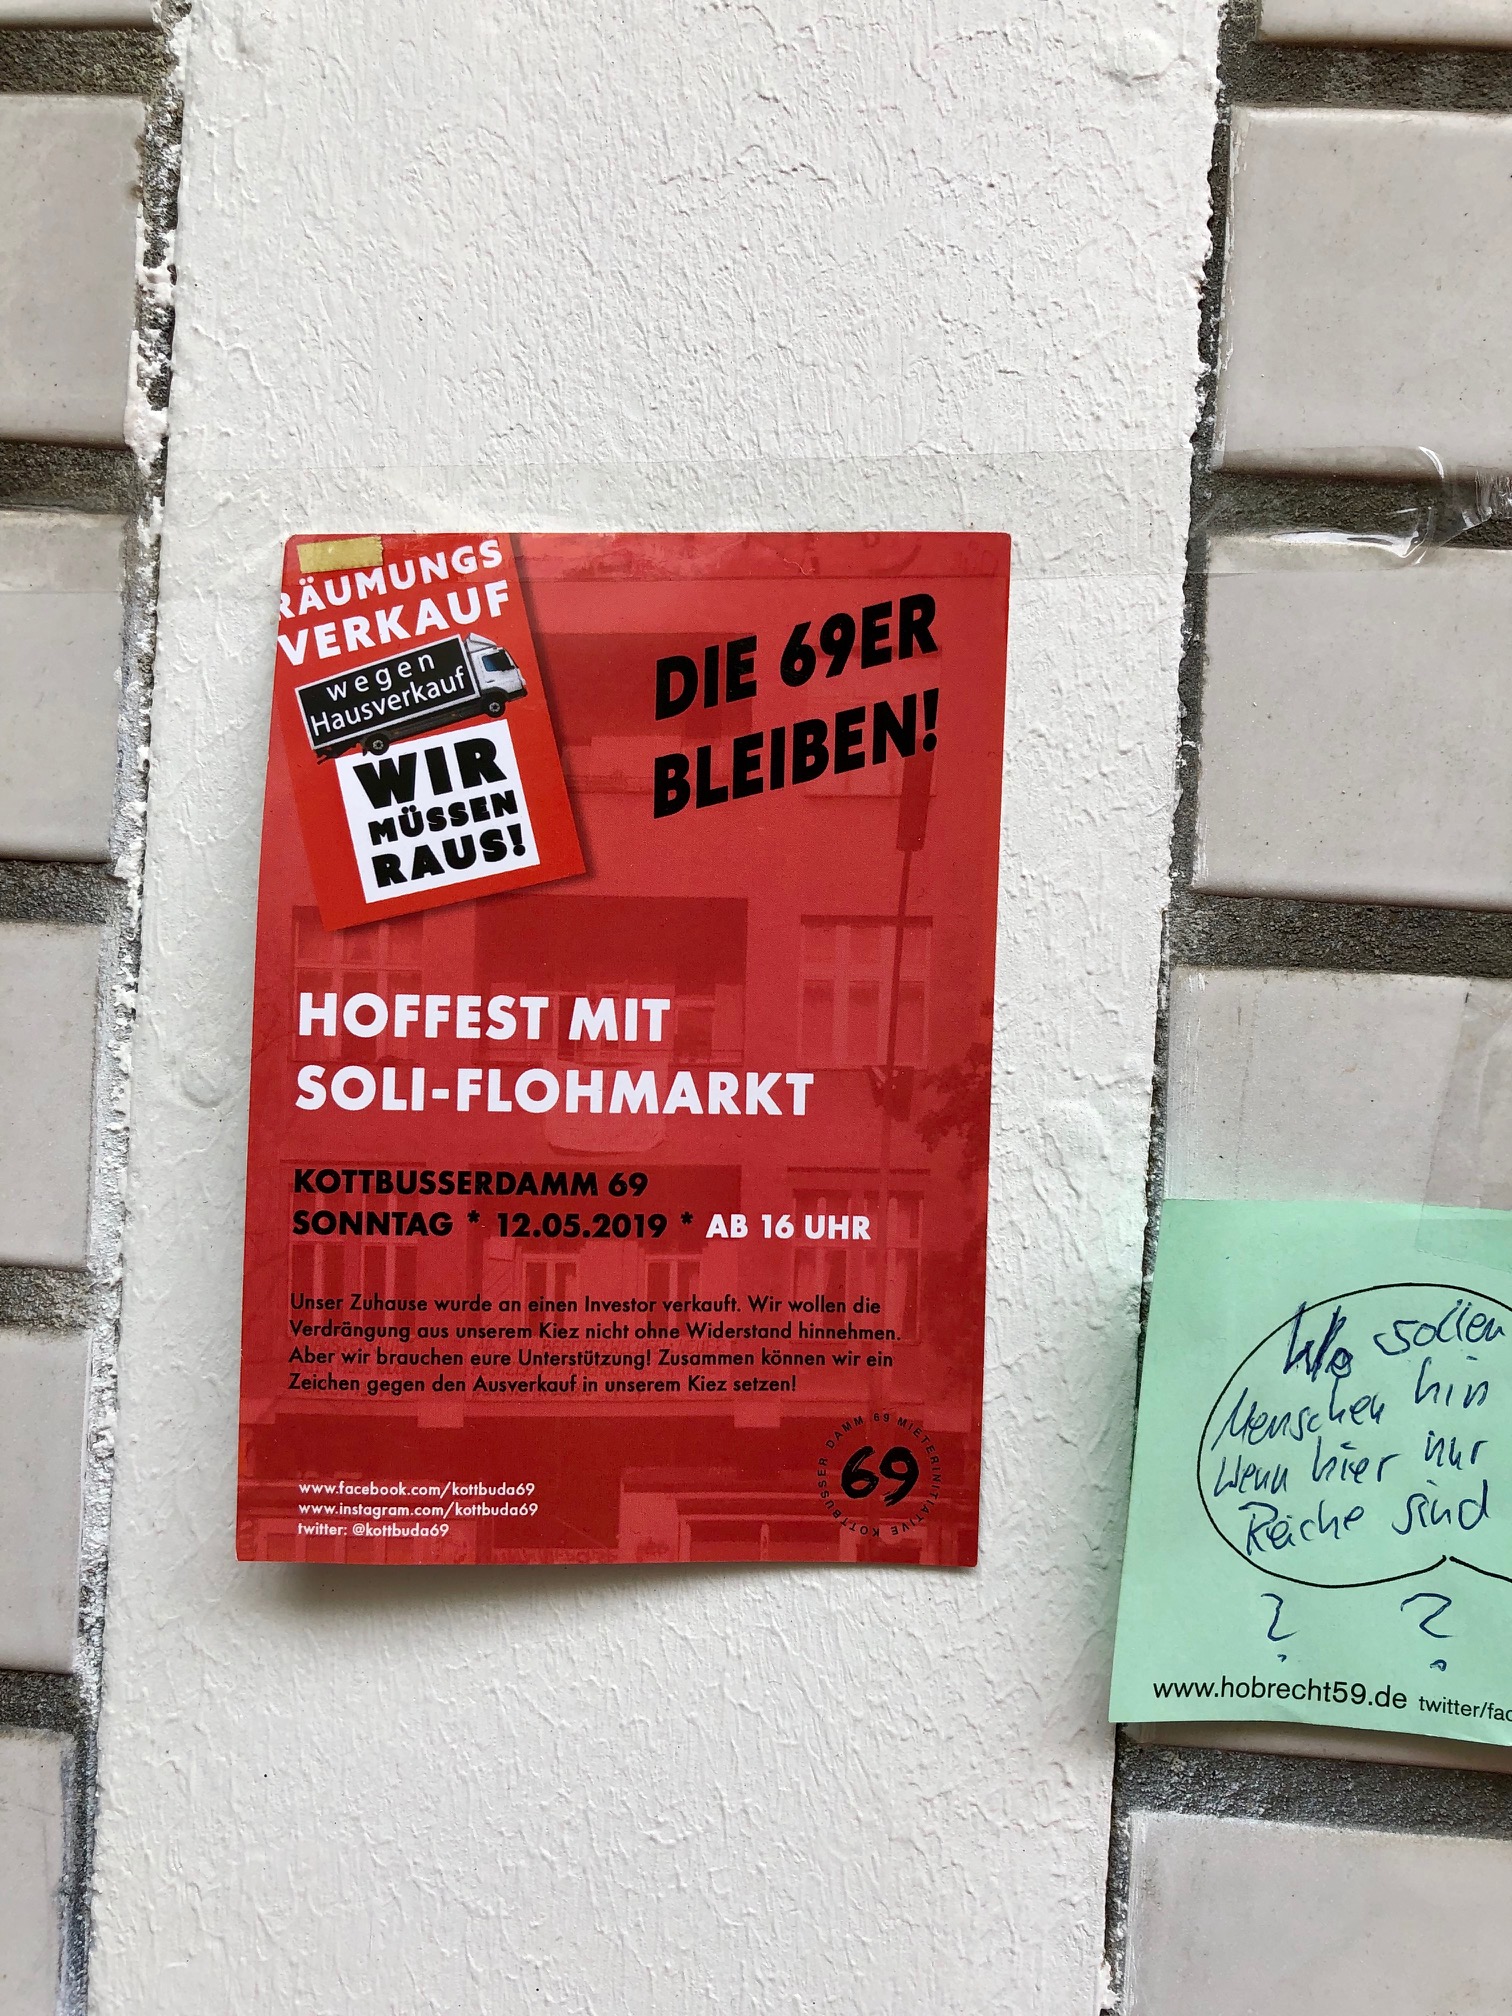 RÄUMUNGS
VERKAUF
wegen
Hausverkauf
WIR
MÜSSEN
RAUS!
DIE 69ER
BLEIBEN!
HOFFEST MIT
SOLI-FLOHMARKT
KOTTBUSSERDAMM 69
SONNTAG * 12.05.2019 * AB 16 UHR
Unser Zuhause wurde an einen Investor verkauft. Wir wollen die
Verdrängung aus unserem Kiez nicht ohne Widerstand hinnehmen.
Aber wir brauchen eure Unterstützung! Zusammen können wir ein
Zeichen gegen den Ausverkauf in unserem Kiez setzen!
www.facebook.com/kottbuda69
www.instagram.com/kottbuda69
twitter: @kottbuda69
MIETERINITIATIVE KOTTBUSSER DAMM 69
69
Wo sollen
Menschen hin
wenn hier nur
Reiche sind
? ?
www.hobrecht59.de twitter/fac